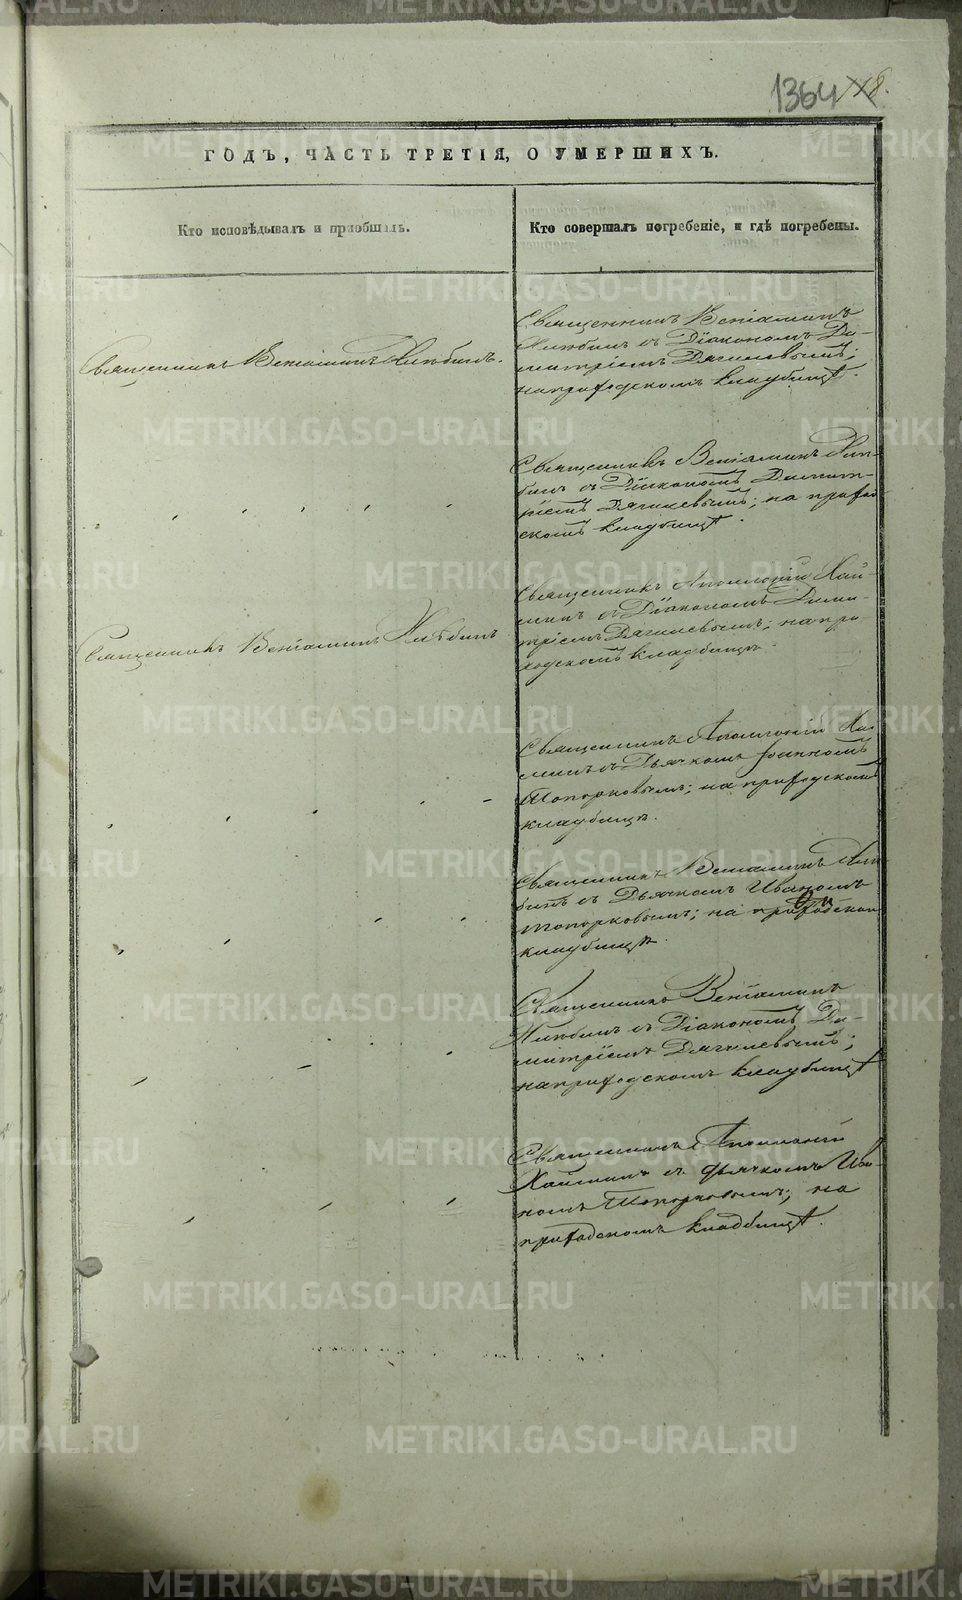 1364
ГОДЪ, ЧАСТЬ ТРЕТІЯ, О УМЕРШИХЪ.
Кто исповѣдывалъ и пріобщалъ.
Кто совершалъ погребеніе, и гдѣ погребены.
Священникъ Веніаминъ Хлѣбинъ.
Священникъ Веніаминъ
Хлѣбинъ съ Діакономъ Ди-
митріемъ Дягилевымъ;
на приходскомъ кладбищѣ.
Священникъ Веніаминъ Хлѣ-
бинъ съ Діакономъ Димит-
ріемъ Дягилевымъ; на приход-
скомъ кладбищѣ.
Священникъ Веніаминъ Хлѣбинъ
Священникъ Аполлоній
съ Діакономъ Дими-
тріемъ Дягилевымъ; на при-
ходскомъ кладбищѣ.
Священникъ Аполлоній
съ Дьячкомъ Іоанномъ
Топорковымъ; на приходскомъ
кладбищѣ.
Священникъ Веніаминъ Хлѣ-
бинъ съ Дьячкомъ Иваномъ
Топорковымъ; на приходском
кладбищѣ.
Священникъ Веніаминъ
Хлѣбинъ съ Діакономъ Ди-
митріемъ Дягилевымъ;
на приходскомъ кладбищѣ
Священникъ Аполлоній
съ дьячкомъ Ива-
номъ Топорковымъ; на
приходскомъ кладбищѣ.
METRIKI.GASO-URAL.RU